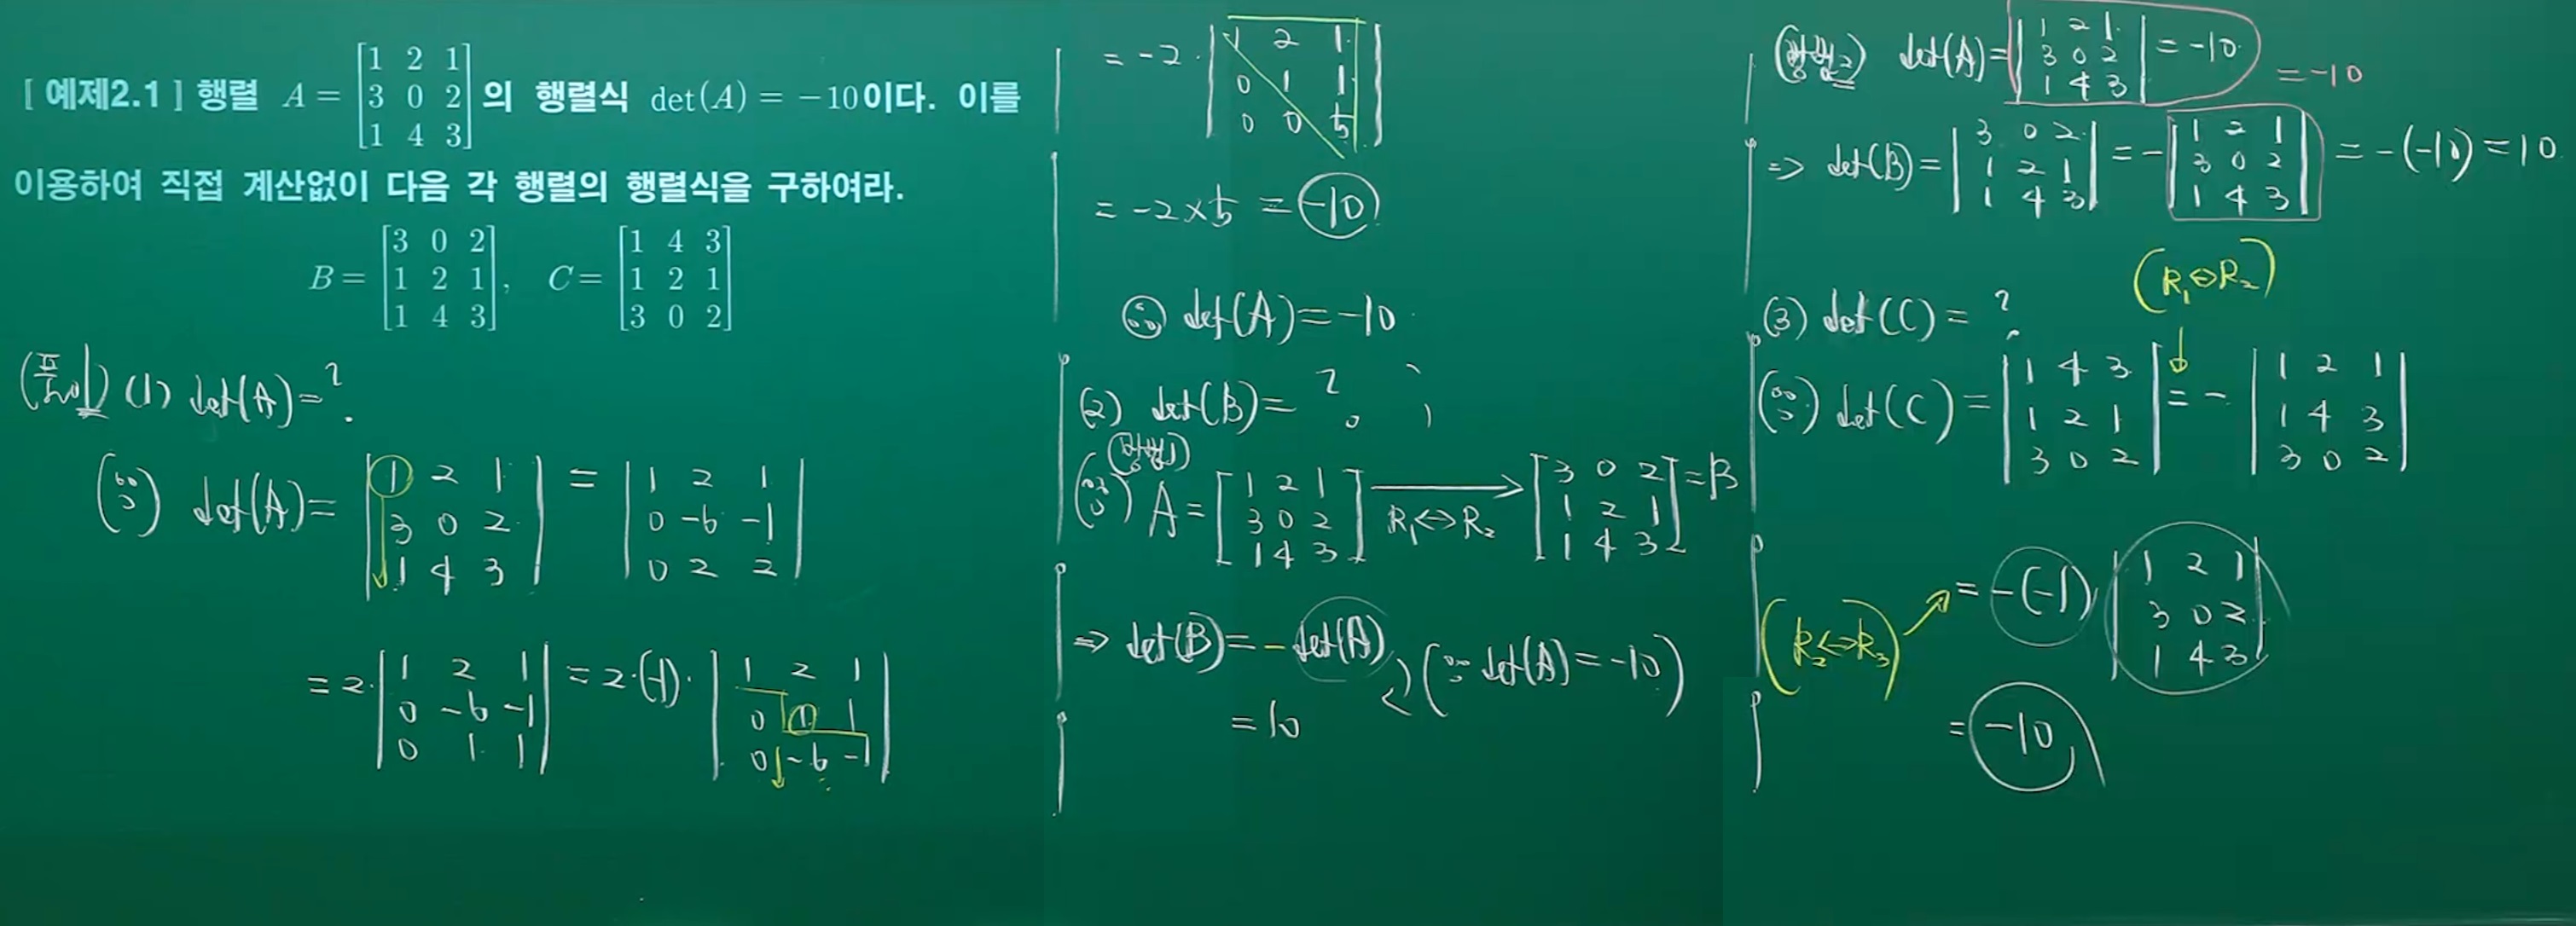 [ 예제2.1 ] 행렬 A = [1 2 1; 3 0 2; 1 4 3] 의 행렬식 det(A) = −10이다. 이를
이용하여 직접 계산없이 다음 각 행렬의 행렬식을 구하여라.
B = [3 0 2; 1 2 1; 1 4 3], C = [1 4 3; 1 2 1; 3 0 2]
(풀이) (1) det(A) = ?
(∵) det(A) = |1 2 1; 3 0 2; 1 4 3| = |1 2 1; 0 -6 -1; 0 2 2|
= 2·|1 2 1; 0 -6 -1; 0 1 1| = 2·(-1)·|1 2 1; 0 1 1; 0 -6 -1|
= -2·|1 2 1; 0 1 1; 0 0 5|
= -2×5 = -10
∴ det(A) = -10
(2) det(B) = ?
(방법1)
(∵) A = [1 2 1; 3 0 2; 1 4 3] → R₁↔R₂ [3 0 2; 1 2 1; 1 4 3] = B
⇒ det(B) = -det(A) (∵ det(A) = -10)
= 10
(방법2) det(A) = |1 2 1; 3 0 2; 1 4 3| = -10 = -10
⇒ det(B) = |3 0 2; 1 2 1; 1 4 3| = -|1 2 1; 3 0 2; 1 4 3| = -(-10) = 10
(R₁↔R₂)
(3) det(C) = ?
(∵) det(C) = |1 4 3; 1 2 1; 3 0 2| = -|1 2 1; 1 4 3; 3 0 2|
(R₂↔R₃) = -(-1)|1 2 1; 3 0 2; 1 4 3|
= -10